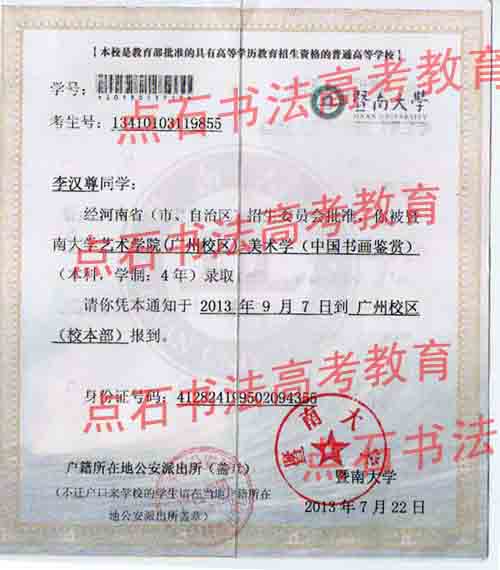 【本校是教育部批准的具有高等学历教育招生资格的普通高等学校】
学号：
暨南大学
JINAN UNIVERSITY
考生号：13410103119855
李汉尊同学：
经河南省（市、自治区）招生委员会批准，你被暨
南大学艺术学院(广州校区) 美术学（中国书画鉴赏）
（本科，学制：4年）录取。
请你凭本通知于 2013 年 9 月 7 日到 广州校区
（校本部）报到。
身份证号码：412824199502094355
户籍所在地公安派出所（盖章）
（不迁户口来学校的学生请在当地户籍所在
地公安派出所盖章）
暨南大学
暨南大学
2013年7月22日
点石书法高考教育
点石书法高考教育
点石书法高考教育
点石书法高考